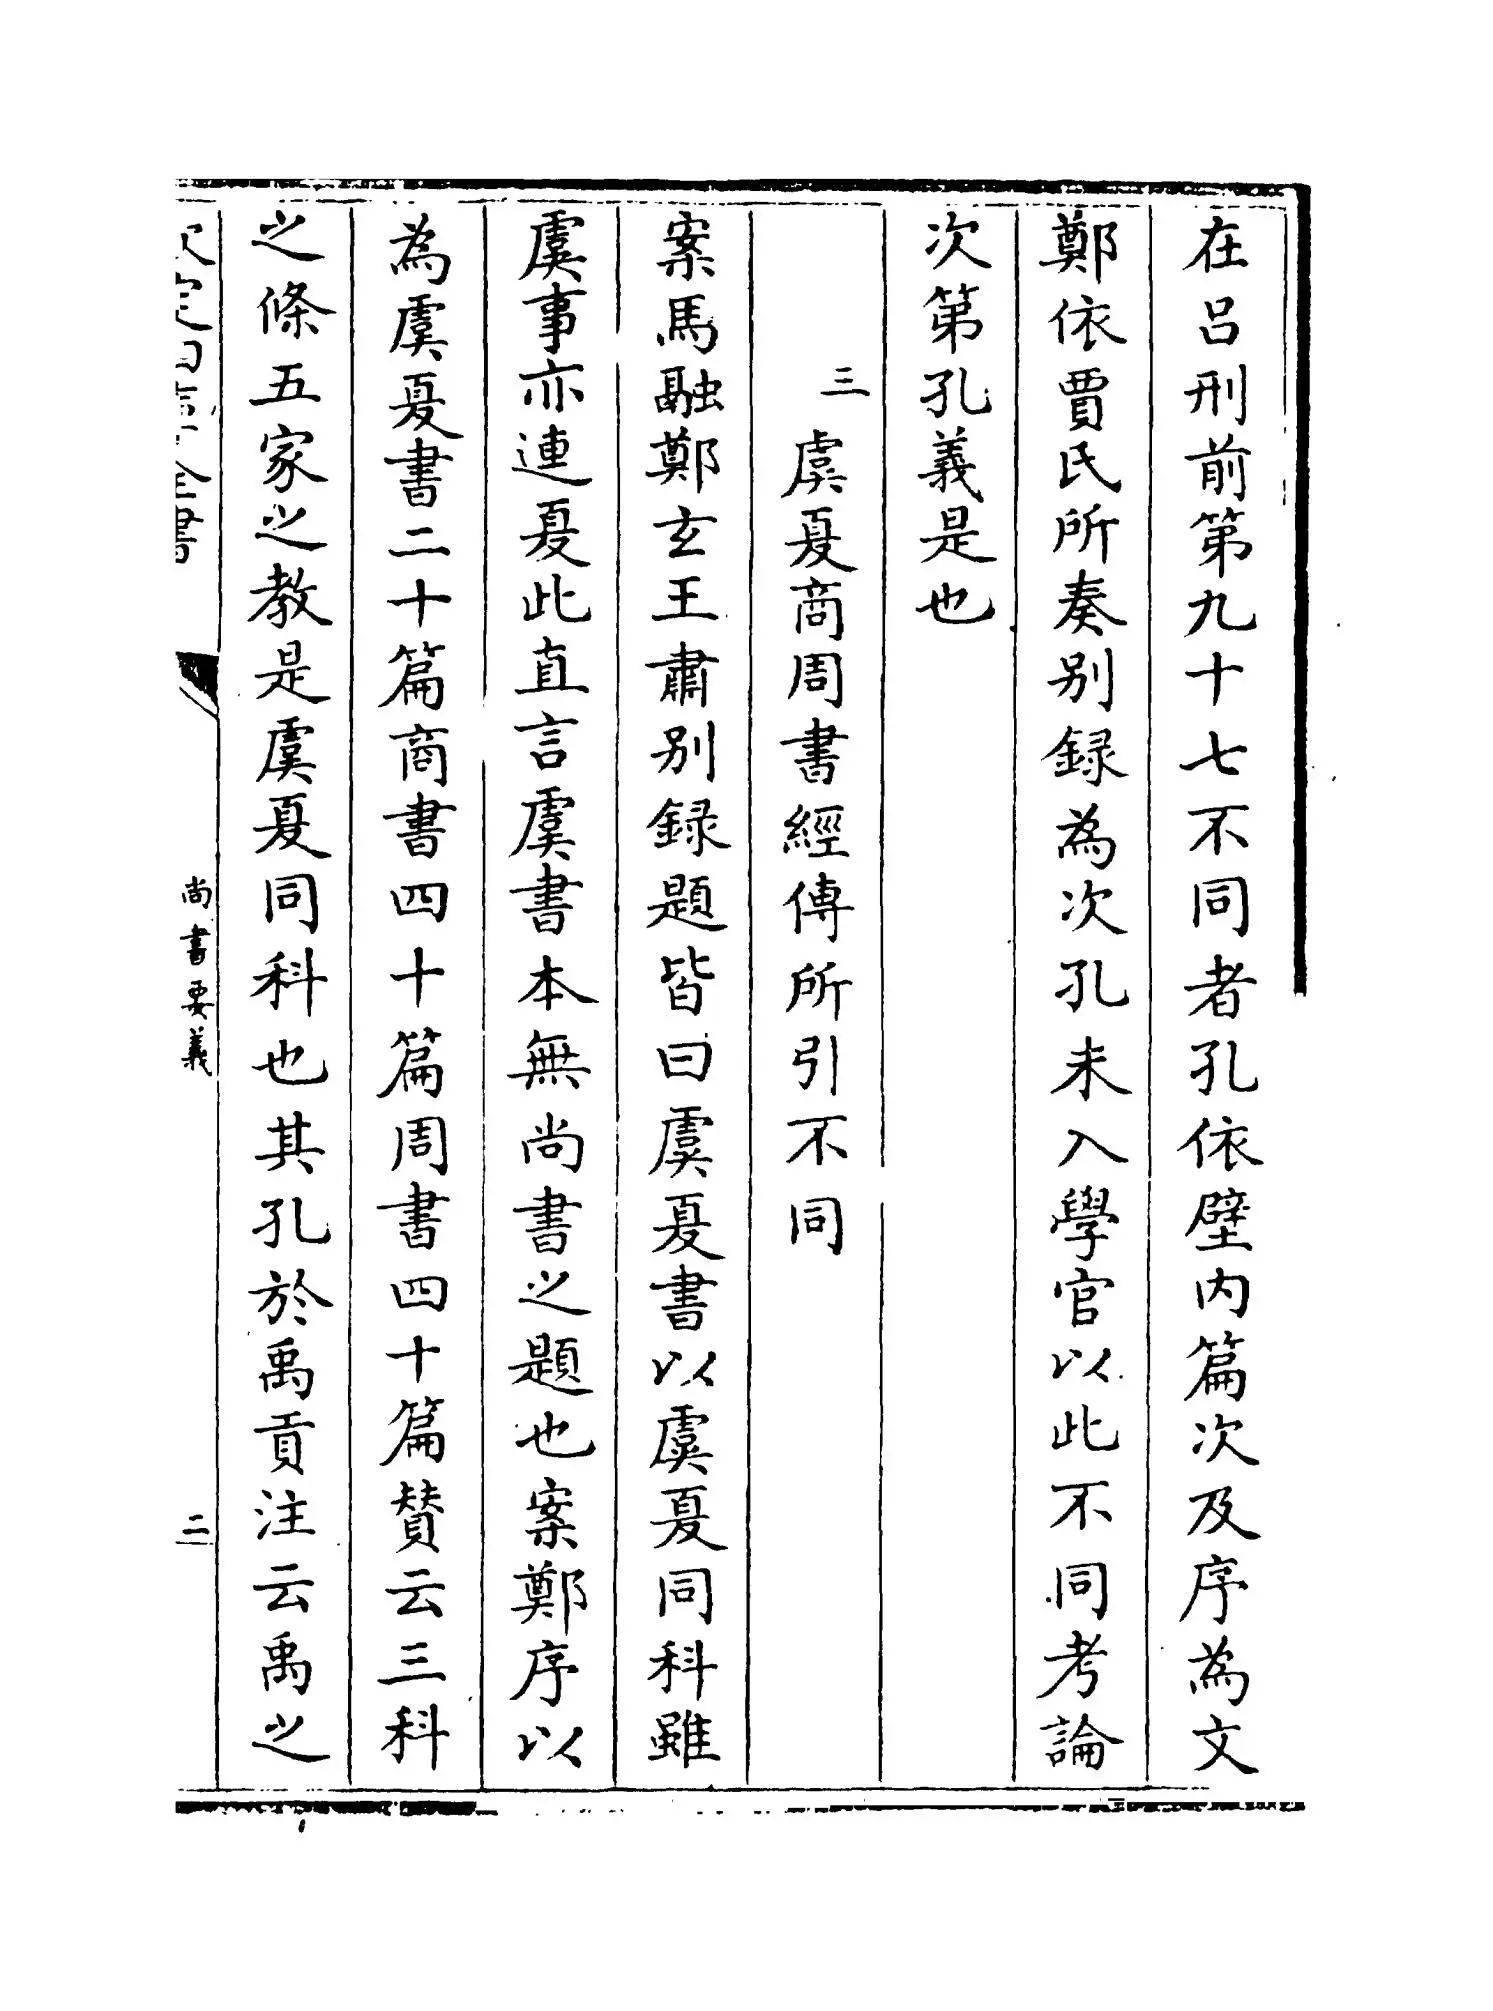 在呂刑前第九十七不同者孔依壁内篇次及序為文
鄭依賈氏所奏别録為次孔未入學官以此不同考論
次第孔義是也
三 虞夏商周書經傳所引不同
案馬融鄭玄王肅别録題皆曰虞夏書以虞夏同科雖
虞事亦連夏此直言虞書本無尚書之題也案鄭序以
為虞夏書二十篇商書四十篇周書四十篇贊云三科
之條五家之教是虞夏同科也其孔於禹貢注云禹之
欽定四庫全書
尚書要義
二